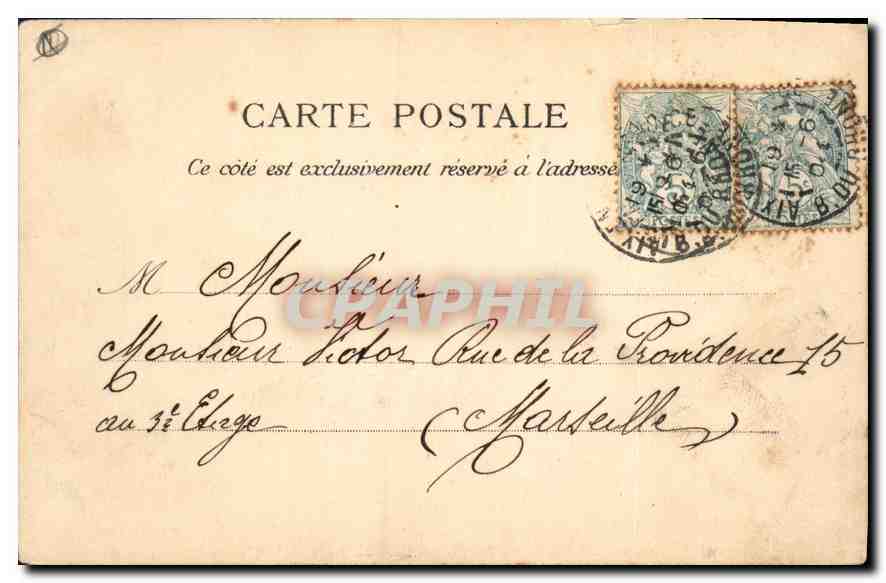 CARTE POSTALE
Ce côté est exclusivement réservé à l'adresse
M Monsieur
Monsieur Victor Rue de la Providence 15
au 3e Etage (Marseille)
CPAPHIL
AIX
B. DU RHONE